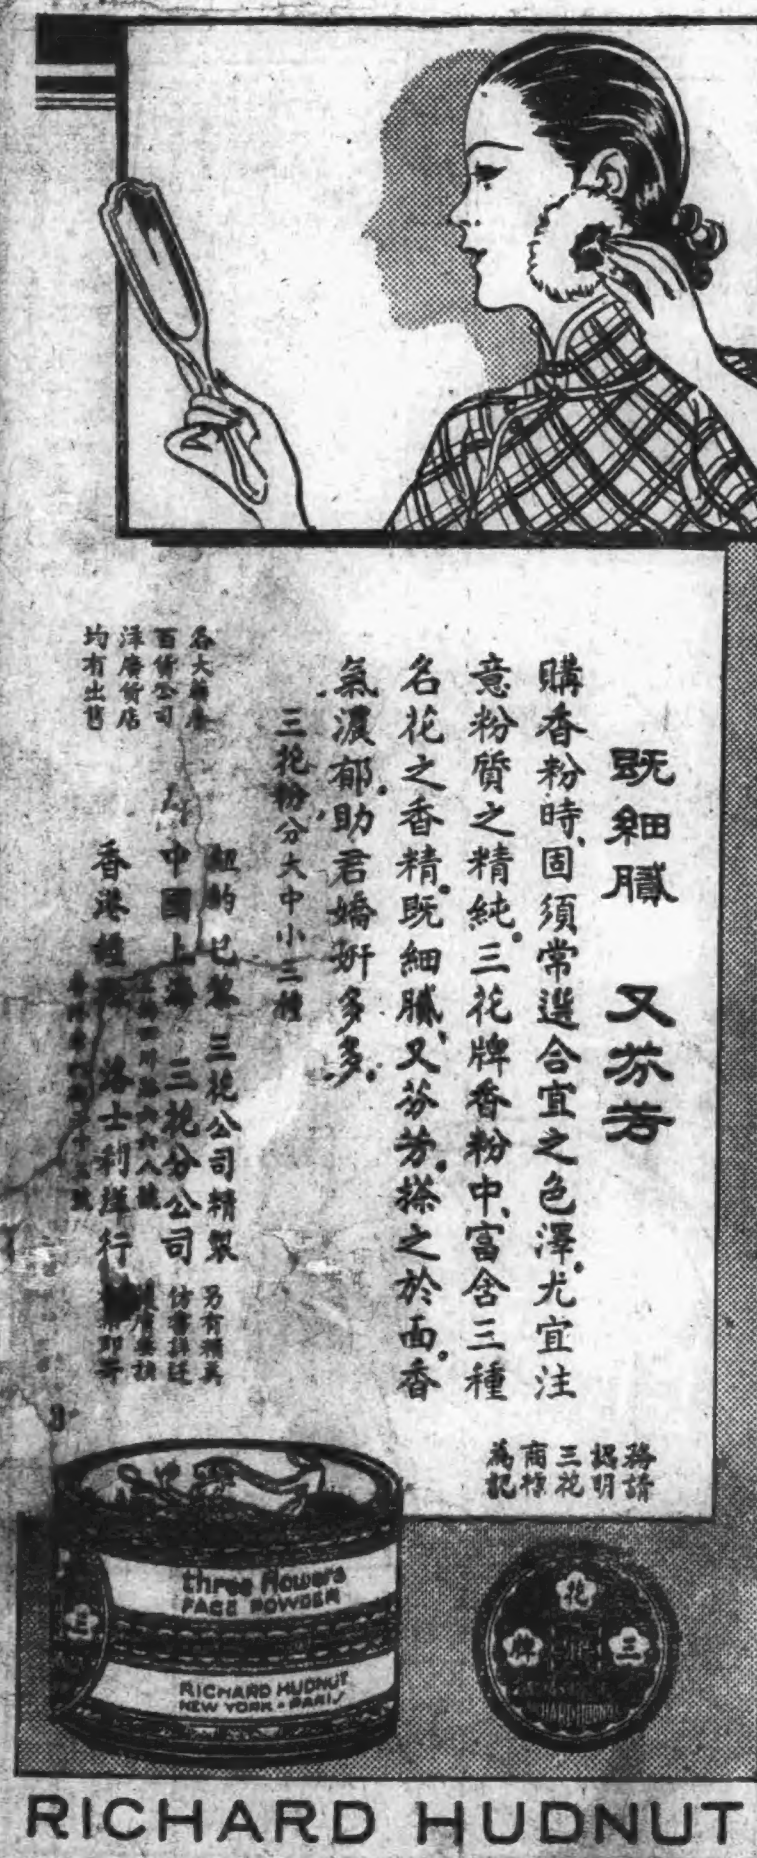 既細膩 又芬芳
購香粉時、固須常選合宜之色澤、尤宜注
意粉質之精純。三花牌香粉中、富含三種
名花之香精。既細膩、又芬芳。搽之於面。香
氣濃郁。助君嬌妍多多。
三花粉分大中小三種
務請
認明
三花
商標
為記
紐約巴黎 三花公司精製
中國上海 三花分公司
四川路六六八號
香港 洛士利洋行
各大
百貨公司
洋廣貨店
均有出售
另有精美
three flowers
FACE POWDER
RICHARD HUDNUT
NEW YORK - PARIS
三
花
三
牌
RICHARD HUDNUT
RICHARD HUDNUT